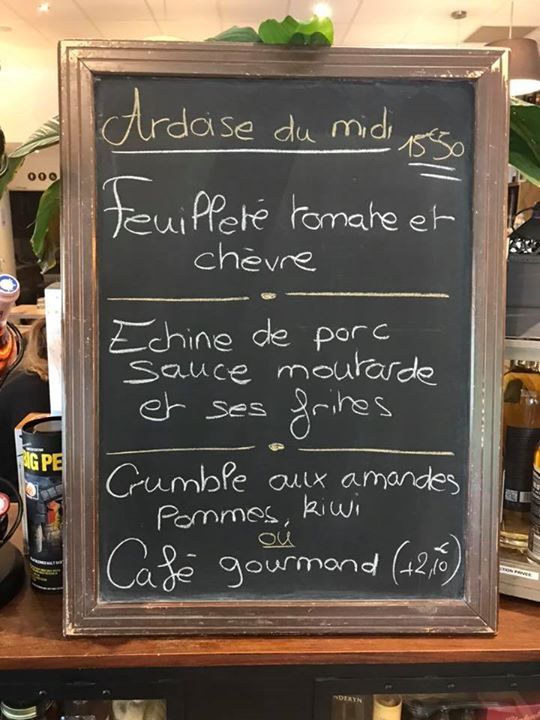 Ardoise du midi 15€50
Feuilleté tomate et
chèvre
Echine de porc
sauce moutarde
et ses frites
Crumble aux amandes
Pommes, kiwi
ou
Café gourmand (+2,10€)
BIG PE